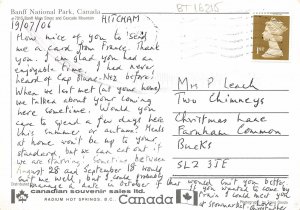 Banff National Park, Canada
19/07/06 HITCHAM
BT 16215
How nice of you to send
me a card from France. Thank
you. I am glad you had an
enjoyable time. I had never
heard of Cap Blanc-Nez before!
When we last met (at your home)
we talked about your coming
here sometime. Would you
care to spend a few days here
this summer or autumn. Meals
at home won't be up to your
standard, but we can eat out if
we are starving. Sometime between
August 28 and September 18 would
suit me well, but I could probably
manage a date in October if
that would suit you better.
If you wanted to come by
train I could meet you
at Stowmarket
Mrs P Leach
Two Chimneys
Christmas Lane
Farnham Common
Bucks
SL2 3JE
canadian souvenir sales ltd.
RADIUM HOT SPRINGS, B.C.
Canada